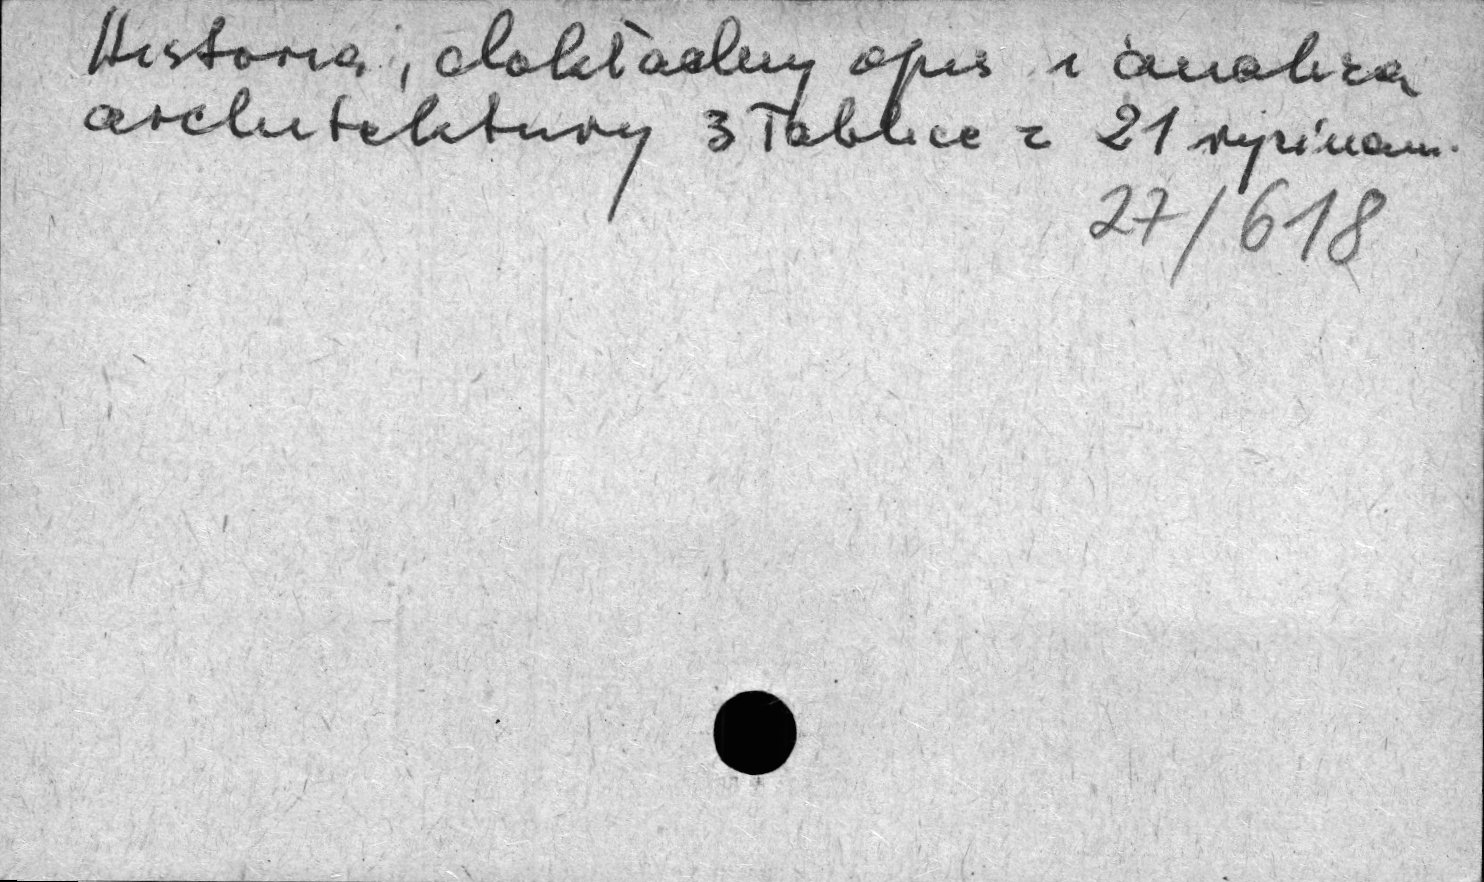 Historia, dokładny opis i analiza
architektury 3 Tablice z 21 rycinam.
27/618